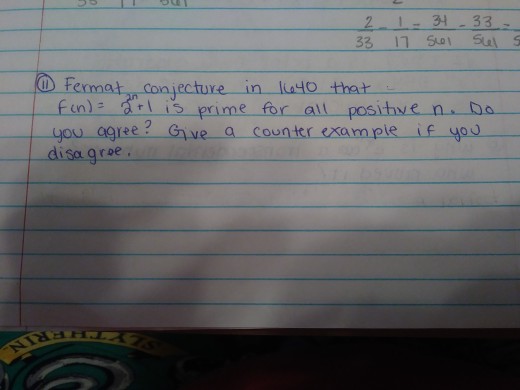 2/33 - 1/17 = 34/561 - 33/561 =
⑪ Fermat conjecture in 1640 that
f(n) = 2^2n+1 is prime for all positive n. Do
you agree? Give a counter example if you
disagree.
SLYTHERIN